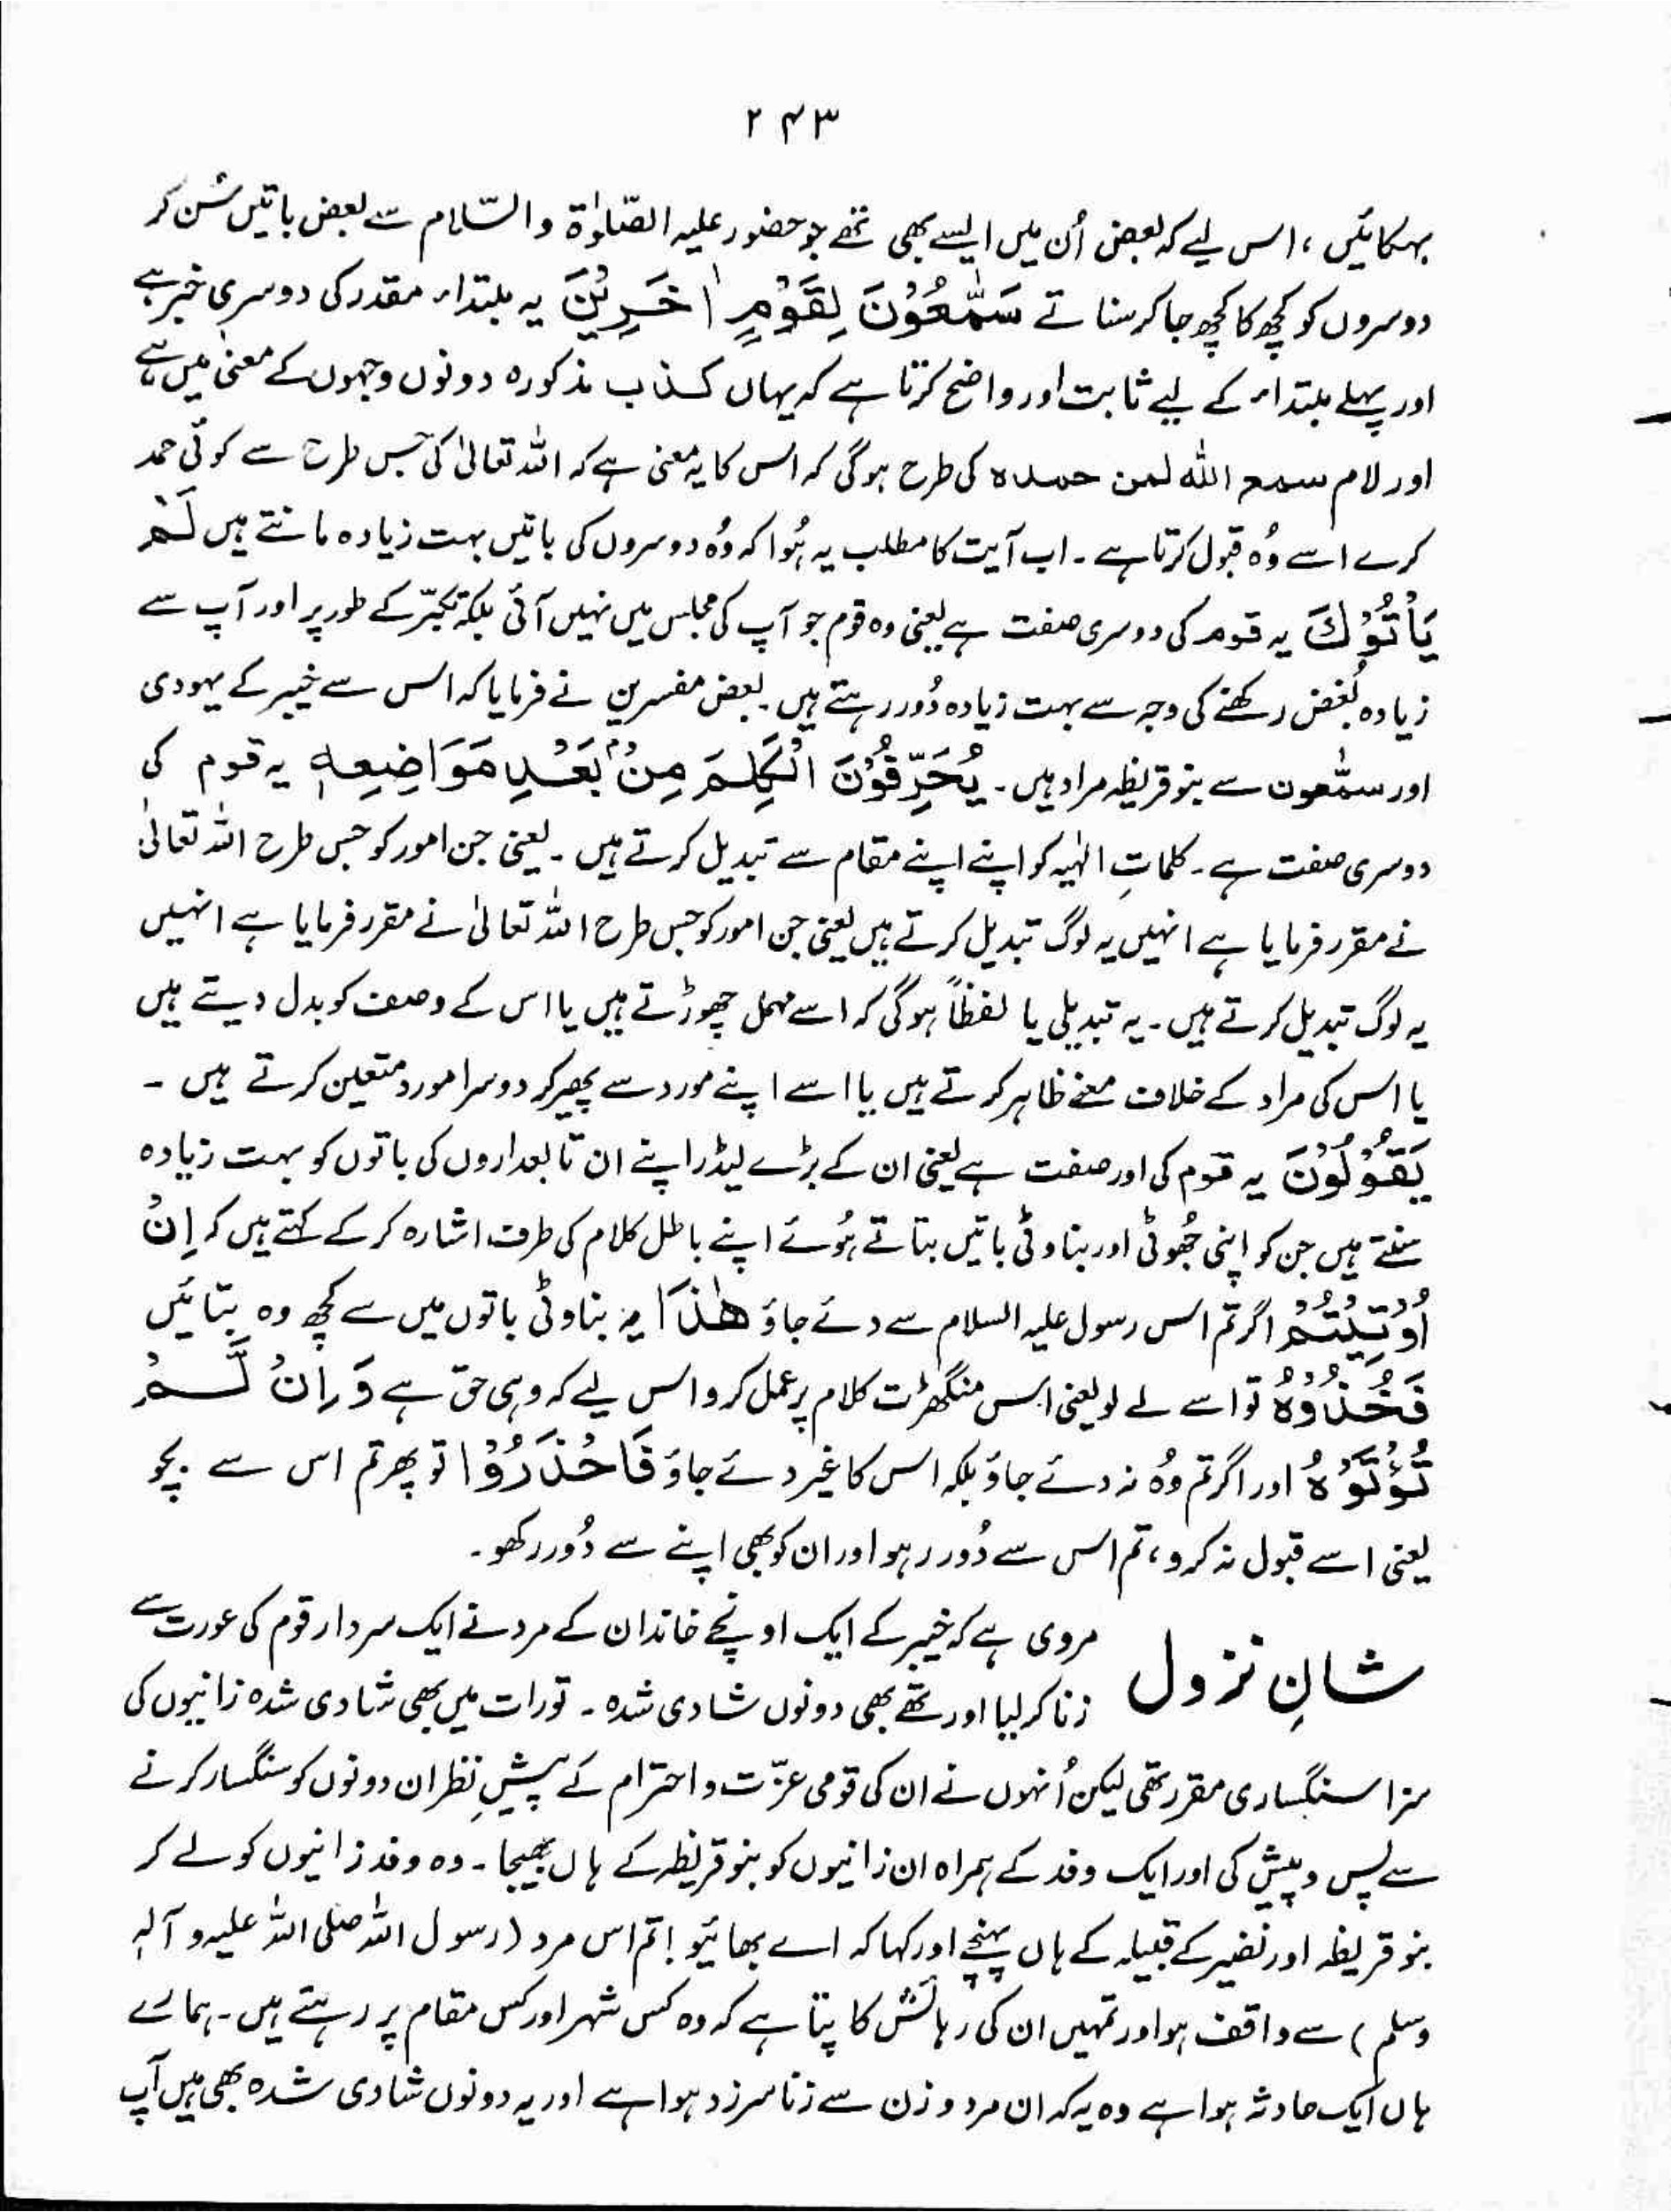 ۲۴۳
بہکائیں ، اس لیے کہ بعض اُن میں ایسے بھی تھے جو حضور علیہ الصّلوٰۃ والسّلام سے بعض باتیں سُن کر
دوسروں کو کچھ کا کچھ جا کر سناتے سَمّٰعُوْنَ لِقَوْمٍ اٰخَرِیْنَ یہ مبتداء مقدر کی دوسری خبر ہے
اور پہلے مبتداء کے لیے ثابت اور واضح کرتا ہے کہ یہاں کذاب مذکورہ دونوں وجہوں کے معنیٰ میں ہے
اور لام سمع اللہ لمن حمدہ کی طرح ہوگی کہ اس کا یہ معنی ہے کہ اللہ تعالیٰ کی جس طرح سے کوئی حمد
کرے اسے وُہ قبول کرتا ہے ۔ اب آیت کا مطلب یہ ہُوا کہ وُہ دوسروں کی باتیں بہت زیادہ مانتے ہیں لَمْ
یَاْتُوْكَ یہ قوم کی دوسری صفت ہے یعنی وہ قوم جو آپ کی مجلس میں نہیں آئی بلکہ تکبّر کے طور پر اور آپ سے
زیادہ بُغض رکھنے کی وجہ سے بہت زیادہ دُور رہتے ہیں ۔ بعض مفسرین نے فرمایا کہ اس سے خیبر کے یہودی
اور سمّٰعون سے بنو قریظہ مراد ہیں ۔ یُحَرِّفُوْنَ الْكَلِمَ مِنْۢ بَعْدِ مَوَاضِعِهٖ یہ قوم کی
دوسری صفت ہے ۔ کلماتِ الٰہیہ کو اپنے اپنے مقام سے تبدیل کرتے ہیں ۔ یعنی جن امور کو جس طرح اللہ تعالیٰ
نے مقرر فرمایا ہے انہیں یہ لوگ تبدیل کرتے ہیں یعنی جن امور کو جس طرح اللہ تعالیٰ نے مقرر فرمایا ہے انہیں
یہ لوگ تبدیل کرتے ہیں ۔ یہ تبدیلی یا لفظاً ہوگی کہ اسے مہمل چھوڑتے ہیں یا اس کے وصف کو بدل دیتے ہیں
یا اس کی مراد کے خلاف معنے ظاہر کرتے ہیں یا اسے اپنے مورد سے پھیر کر دوسرا مورد متعین کرتے ہیں ۔
یَقُوْلُوْنَ یہ قوم کی اور صفت ہے یعنی ان کے بڑے لیڈر اپنے ان تابعداروں کی باتوں کو بہت زیادہ
سنتے ہیں جن کو اپنی جُھوٹی اور بناوٹی باتیں بتاتے ہُوئے اپنے باطل کلام کی طرف اشارہ کر کے کہتے ہیں کہ اِنْ
اُوْتِیْتُمْ اگر تم اس رسول علیہ السلام سے دئے جاؤ ھٰذَا یہ بناوٹی باتوں میں سے کچھ وہ بتائیں
فَخُذُوْهُ تو اسے لے لو یعنی اس منگھڑت کلام پر عمل کرو اس لیے کہ وہی حق ہے وَ اِنْ لَّمْ
تُؤْتَوْهُ اور اگر تم وُہ نہ دئے جاؤ بلکہ اس کا غیر دئے جاؤ فَاحْذَرُوْا تو پھر تم اس سے بچو
یعنی اسے قبول نہ کرو ، تم اس سے دُور رہو اور ان کو بھی اپنے سے دُور رکھو ۔
شانِ نزول مروی ہے کہ خیبر کے ایک اونچے خاندان کے مرد نے ایک سردار قوم کی عورت سے
زنا کر لیا اور تھے بھی دونوں شادی شدہ ۔ تورات میں بھی شادی شدہ زانیوں کی
سزا سنگساری مقرر تھی لیکن اُنہوں نے ان کی قومی عزّت و احترام کے پیشِ نظر ان دونوں کو سنگسار کرنے
سے پس و پیش کی اور ایک وفد کے ہمراہ ان زانیوں کو بنو قریظہ کے ہاں بھیجا ۔ وہ وفد زانیوں کو لے کر
بنو قریظہ اور نضیر کے قبیلہ کے ہاں پہنچے اور کہا کہ اے بھائیو ! تم اس مرد ( رسول اللہ صلی اللہ علیہ و آلہٖ
وسلم ) سے واقف ہو اور تمہیں ان کی رہائش کا پتا ہے کہ وہ کس شہر اور کس مقام پر رہتے ہیں ۔ ہمارے
ہاں ایک حادثہ ہوا ہے وہ یہ کہ ان مرد و زن سے زنا سرزد ہوا ہے اور یہ دونوں شادی شدہ بھی ہیں آپ